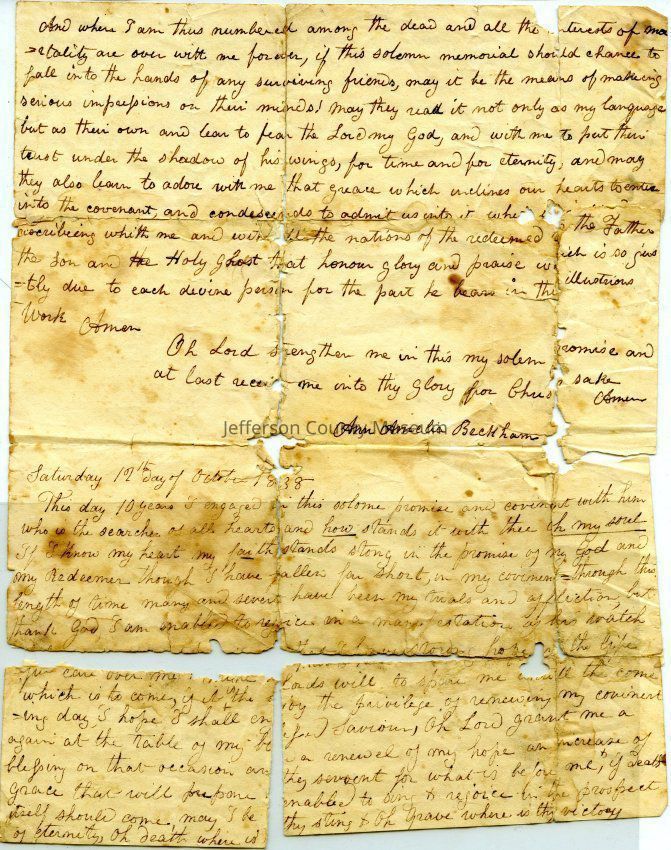 And where I am thus numbered among the dead and all the interests of mo
=rtality are over with me forever, if this solemn memorial should chance to
fall into the hands of any surviving friends, may it be the means of making
serious impressions on their minds! may they read it not only as my language
but as their own and lear to fear the Lord my God, and with me to put their
trust under the shadow of his wings, for time and for eternity, and may
they also learn to adore with me that greace which inclines our hearts to enter
into the covenant, and condescends to admit us into it when the Father
asscribeing whith me and with the nations of the redeemed
the Son and the Holy Ghost that honour glory and praise which is so jus
=tly due to each devine person for the part he bears in the illustrious
Work Amen
Oh Lord strengthen me in this my solem promise and
at last receve me into thy Glory for Chris sake
Amen
Jefferson County Museum
Ann Amelia Beckham
Saturday 12th day of October 1838
This day 10 years I engaged in this solome promise and covinent with him
who is the searcher of all hearts and how stands it with thee Oh my soul
If I know my heart my faith stands stong in the promise of my God and
my Redeemer though I have fallen far short, in my covinent = through this
length of time many and severe have been my trials and affliction, but
thank God I am enabled to rejoice in a manifestation of his watch
care over me hope the life
which is to come, if it the Lords will to spare me the com
=ing day I hope I shall enjoy the privilege of renewing my covinent
again at the table of my Saviour, Oh Lord grant me a
blessing on that occasion a renewel of my hope an increase of
grace that will prepare thy servent for what is before me, if death
itself should come, may I be enabled to sing & rejoice in the prospect
of eternity, Oh death where is thy sting & Oh Grave where is thy victory